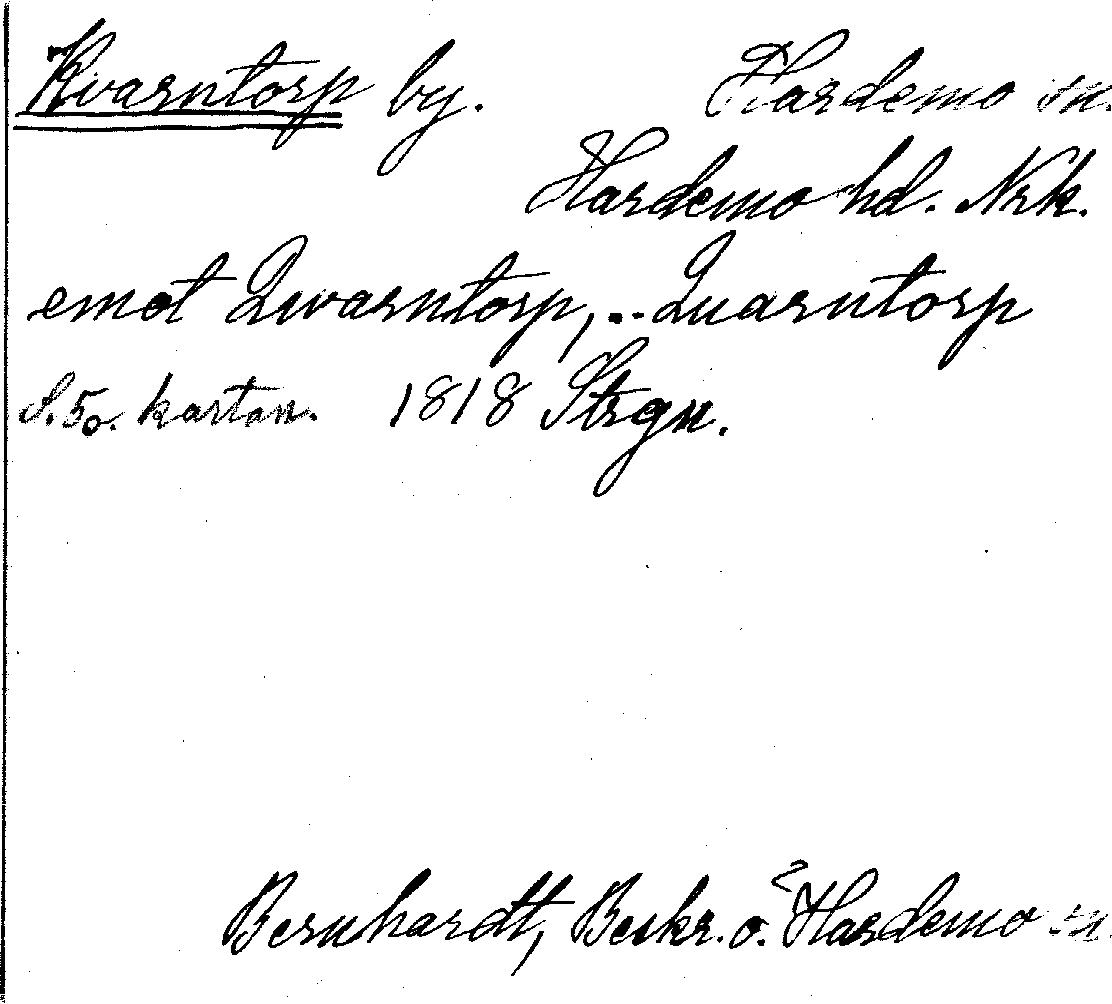 Kvarntorp by. Hardemo sn.
Hardemo hd. Nrk.
emot Qwarntorp, .. Quarntorp
S. 50. kartan. 1818 Strgn.
Bernhardt, Beskr. o. Hardemo sn.